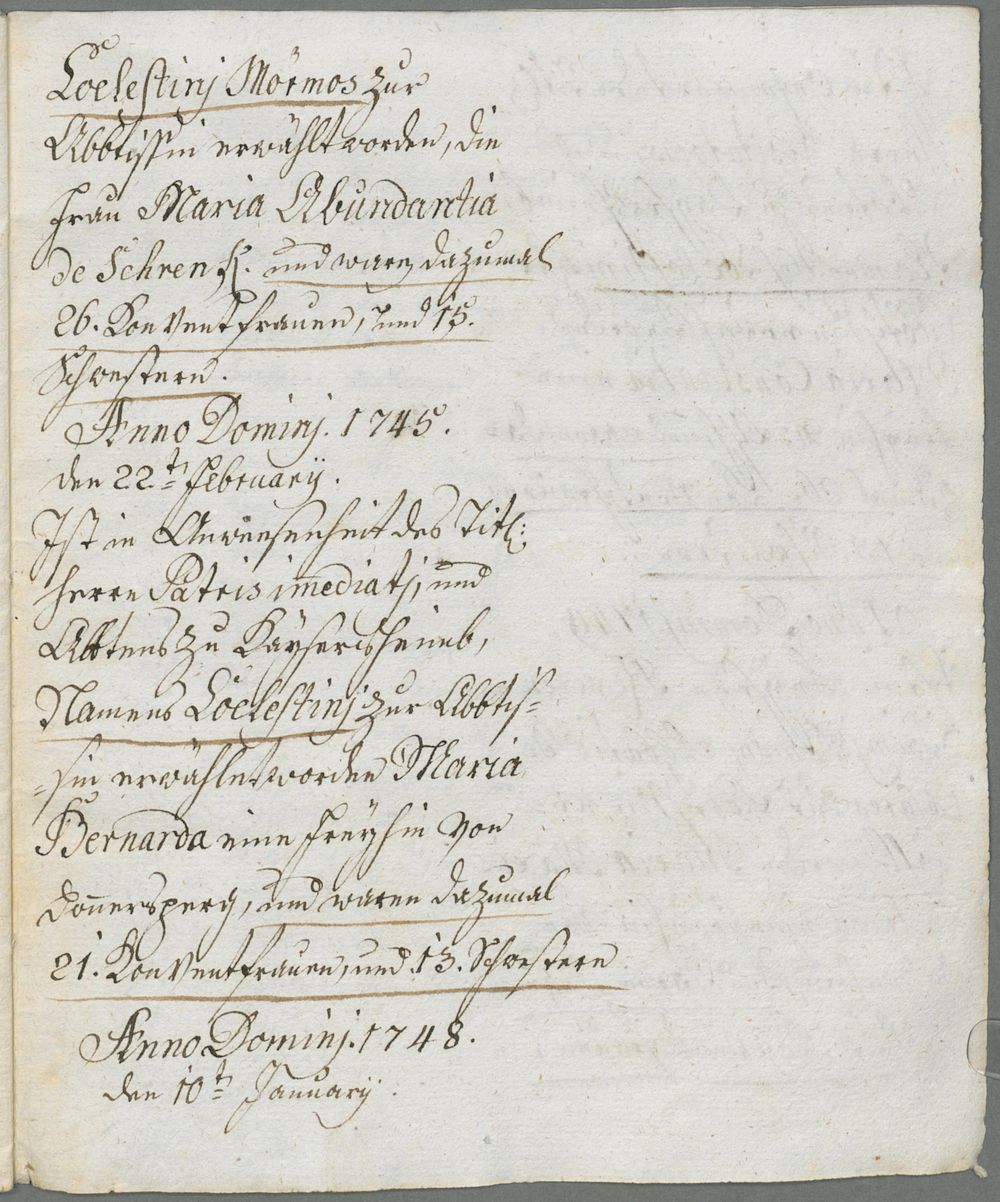 Coelestinj Mörmos zur
Abbtissin erwählt worden, die
Frau Maria Abundantia
de Schrenk. und waren dazumal
26. Konventfrauen, und 15.
Schwestern.
Anno Dominj. 1745.
den 22t. February.
Ist in Anwesenheit des Titl:
Herrn Patris imediatj, und
Abbtens zu Kaÿsersheimb,
Namens Coelestinj zur Abbtis=
=sin erwählt worden Maria
Bernarda eine Freÿhin von
Donnersperg, und waren dazumal
21. Konventfrauen, und 13. Schwestern
Anno Dominj. 1748.
den 10t. Januarÿ.